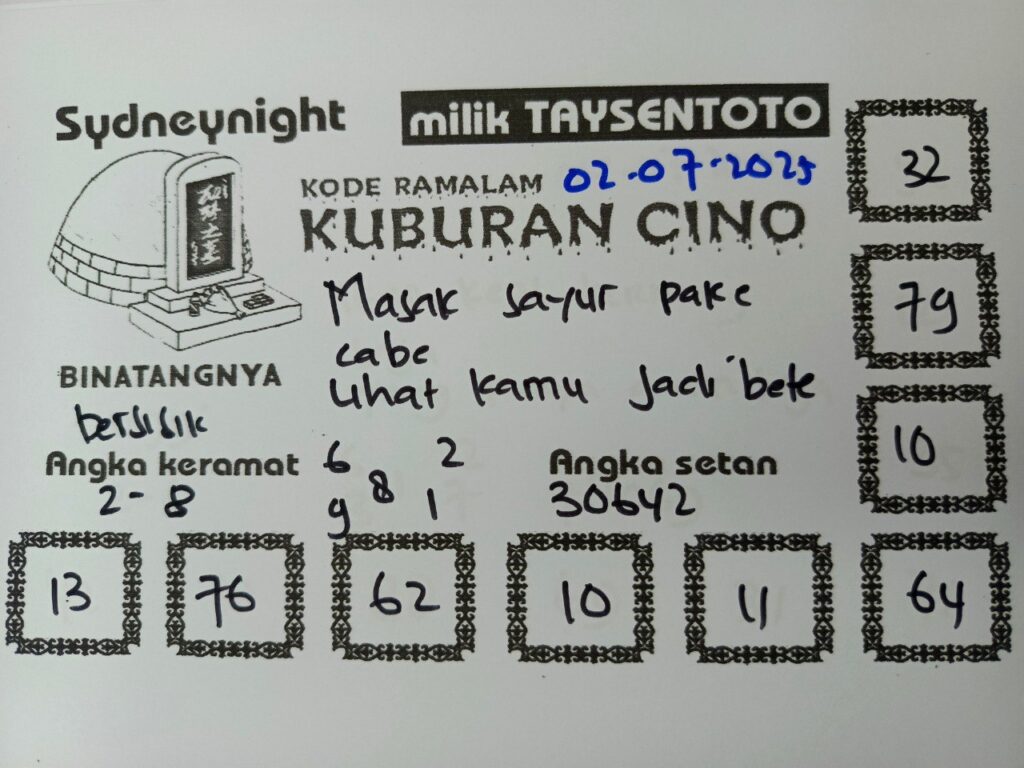 Sydneynight
milik TAYSENTOTO
KODE RAMALAM 02-07-2025
KUBURAN CINO
Masak sayur pake
cabe
Lihat kamu jadi bete
BINATANGNYA
bersisik
Angka keramat
2-8
6 2
8
9 1
Angka setan
30642
32
79
10
13 76 62 10 11 64